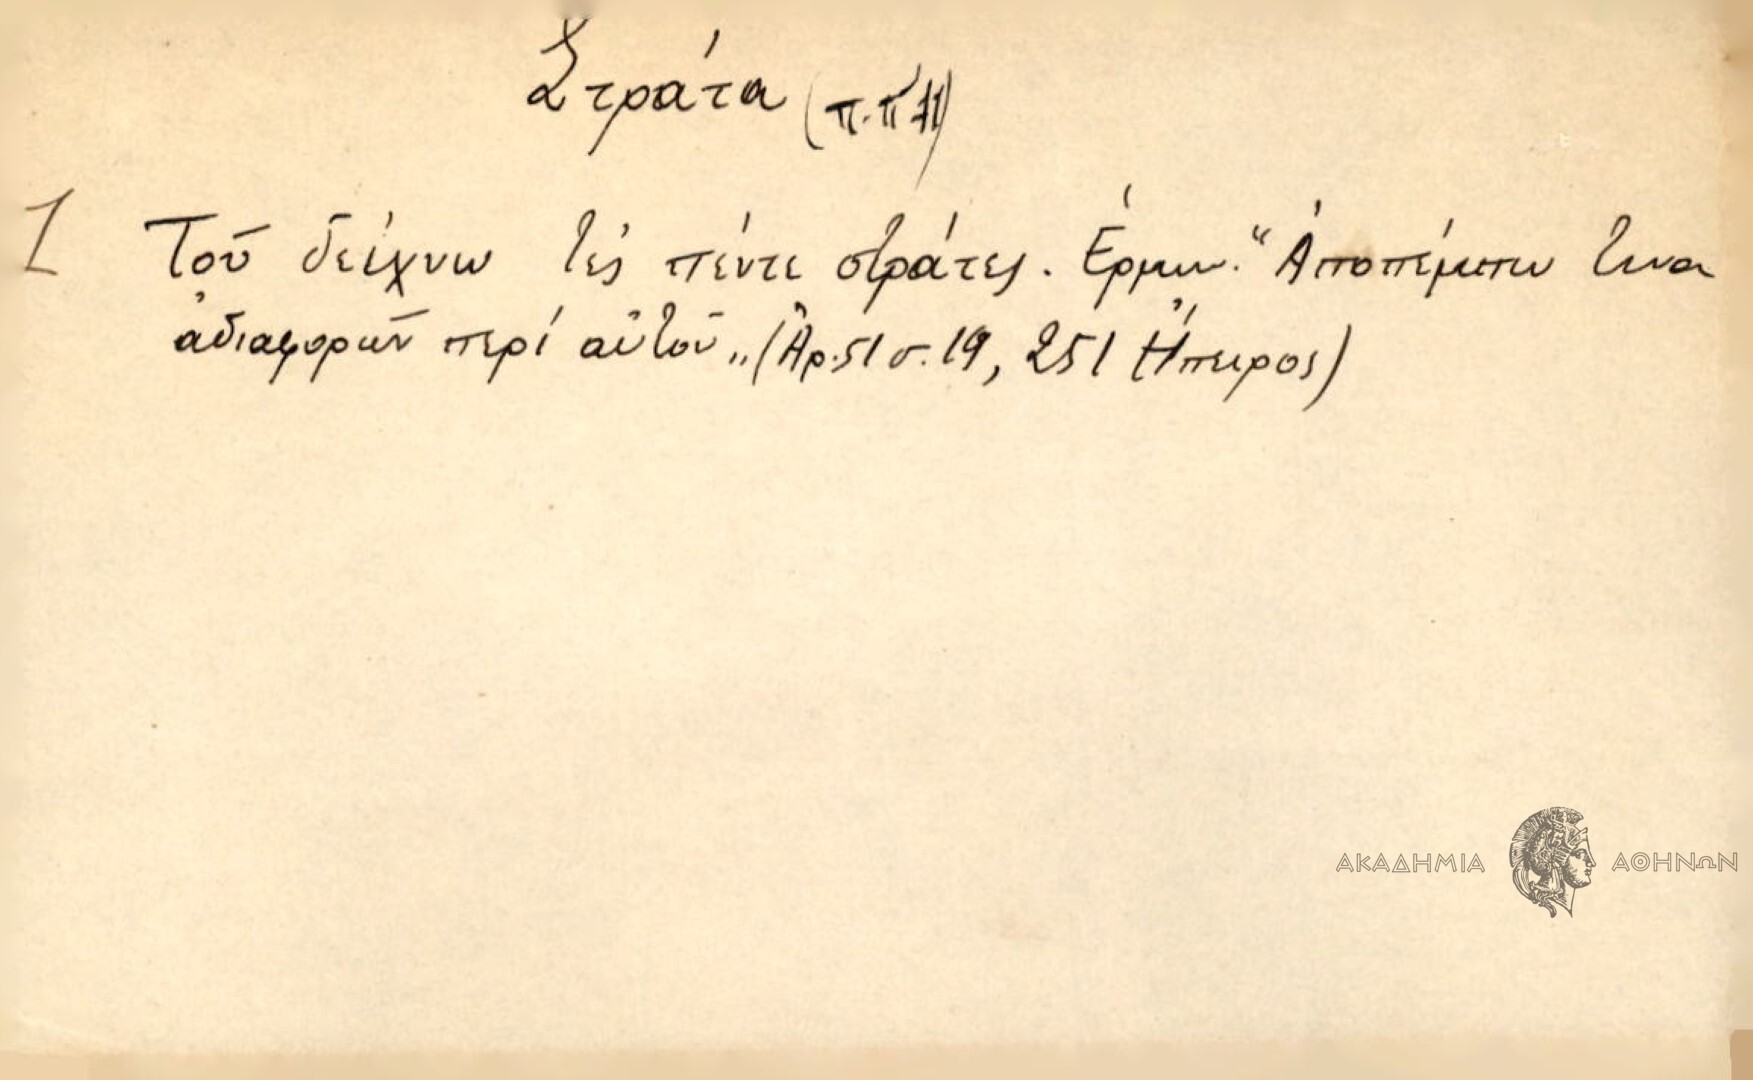 Στράτα
1 Τοῦ δείχνω τές πέντε στράτες. Ἑρμην. "Ἀποπέμπω τινα
ἀδιαφορῶν περί αὐτοῦ„ (Ἀρ. 51 σ. 19, 251 Ἤπειρος)
ΑΚΑΔΗΜΙΑ ΑΘΗΝΩΝ